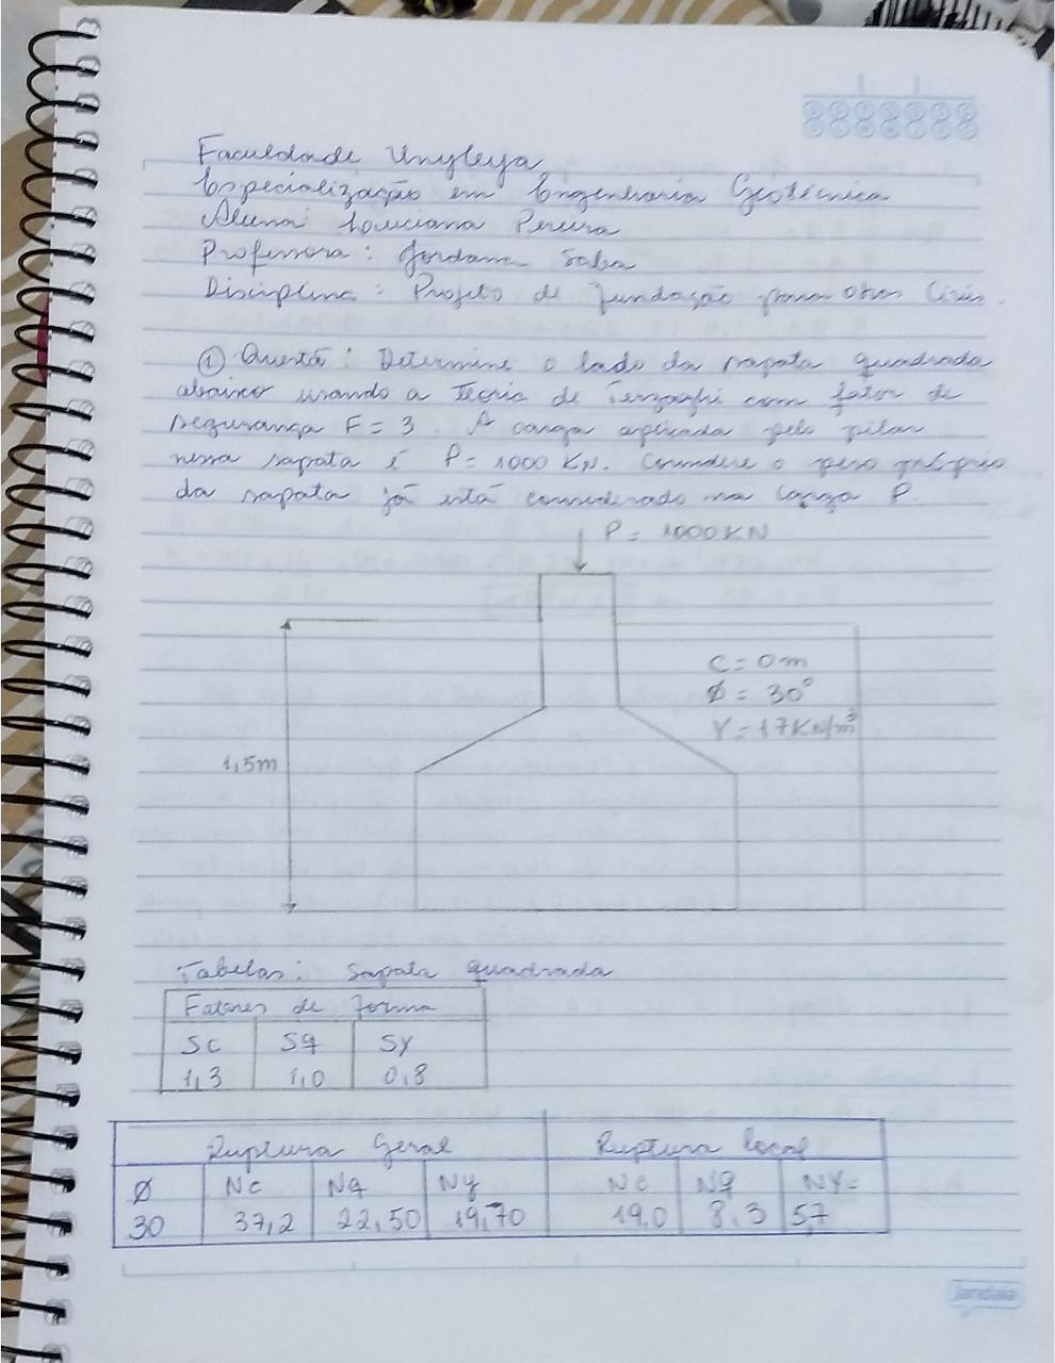 Faculdade Unyleya
Especialização em Engenharia Geotécnica
Aluna: Louciana Pereira
Professora: Jordana Saba
Disciplina: Projeto de Fundação para Obras Civis.
① Questã: Determine o lado da sapata quadrada
abaixo usando a Teoria de Terzaghi com fator de
segurança F = 3. A carga aplicada pelo pilar
nessa sapata é P = 1000 KN. Considere o peso próprio
da sapata já está considerado na carga P.
P = 1000 KN
C = 0 m
Ø = 30°
γ = 17 KN/m³
1,5m
Tabelas: Sapata quadrada
Fatores de forma
Sc Sq Sγ
1,3 1,0 0,8
Ruptura Geral Ruptura local
Ø Nc Nq Nγ Nc Nq Nγ=
30 37,2 22,50 19,70 19,0 8,3 5,7
jandaia